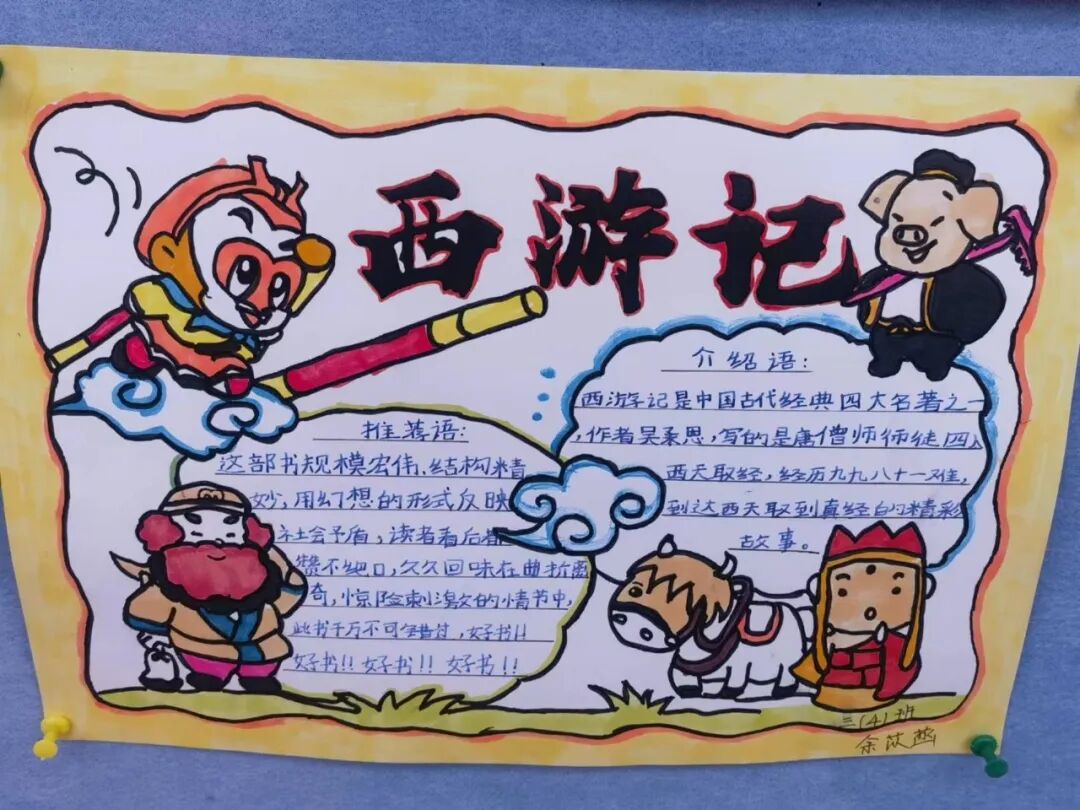 西游记
介绍语:
西游记是中国古代经典四大名著之一
,作者吴承恩,写的是唐僧师师徒四人
西天取经,经历九九八十一难,
到达西天取到真经的精彩
故事。
推荐语:
这部书规模宏伟、结构精
妙,用幻想的形式反映
社会矛盾,读者看后都
赞不绝口,久久回味在曲折离
奇,惊险刺激的情节中,
此书千万不可错过,好书!!
好书!! 好书!! 好书!!
三(4)班
余